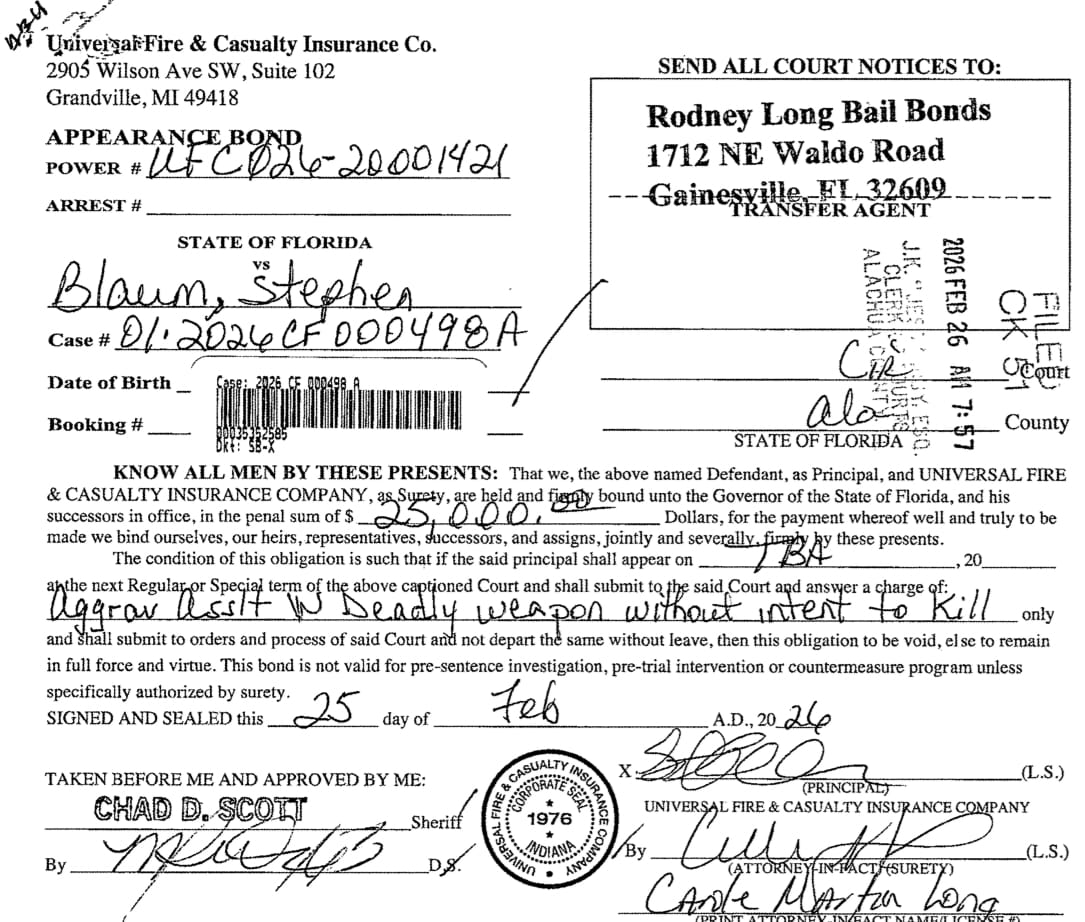 Universal Fire & Casualty Insurance Co.
2905 Wilson Ave SW, Suite 102
Grandville, MI 49418
SEND ALL COURT NOTICES TO:
Rodney Long Bail Bonds
1712 NE Waldo Road
Gainesville, FL 32609
TRANSFER AGENT
APPEARANCE BOND
POWER # UFC026-20001421
ARREST #
STATE OF FLORIDA
vs
Blaum, Stephen
Case # 01-2026 CF 000498 A
Date of Birth
Booking #
Case: 2026 CF 000498 A
00035352585
Dkt: SB-X
2026 FEB 26 AM 7:57
FILED
CK 51
CLERK
ALACHUA
Cir Court
Ala County
STATE OF FLORIDA
KNOW ALL MEN BY THESE PRESENTS: That we, the above named Defendant, as Principal, and UNIVERSAL FIRE
& CASUALTY INSURANCE COMPANY, as Surety, are held and firmly bound unto the Governor of the State of Florida, and his
successors in office, in the penal sum of $ 25,000.00 Dollars, for the payment whereof well and truly to be
made we bind ourselves, our heirs, representatives, successors, and assigns, jointly and severally, firmly by these presents.
The condition of this obligation is such that if the said principal shall appear on TBA , 20
at the next Regular or Special term of the above captioned Court and shall submit to the said Court and answer a charge of:
Aggrav Asslt W Deadly weapon without intent to Kill only
and shall submit to orders and process of said Court and not depart the same without leave, then this obligation to be void, else to remain
in full force and virtue. This bond is not valid for pre-sentence investigation, pre-trial intervention or countermeasure program unless
specifically authorized by surety.
SIGNED AND SEALED this 25 day of Feb A.D., 20 26
TAKEN BEFORE ME AND APPROVED BY ME:
CHAD D. SCOTT Sheriff
By D.S.
UNIVERSAL FIRE & CASUALTY INSURANCE COMPANY
CORPORATE SEAL
1976
INDIANA
X (L.S.)
(PRINCIPAL)
UNIVERSAL FIRE & CASUALTY INSURANCE COMPANY
By (L.S.)
(ATTORNEY-IN-FACT) (SURETY)
Carole Martin Long
(PRINT ATTORNEY-IN-FACT NAME/LICENSE #)